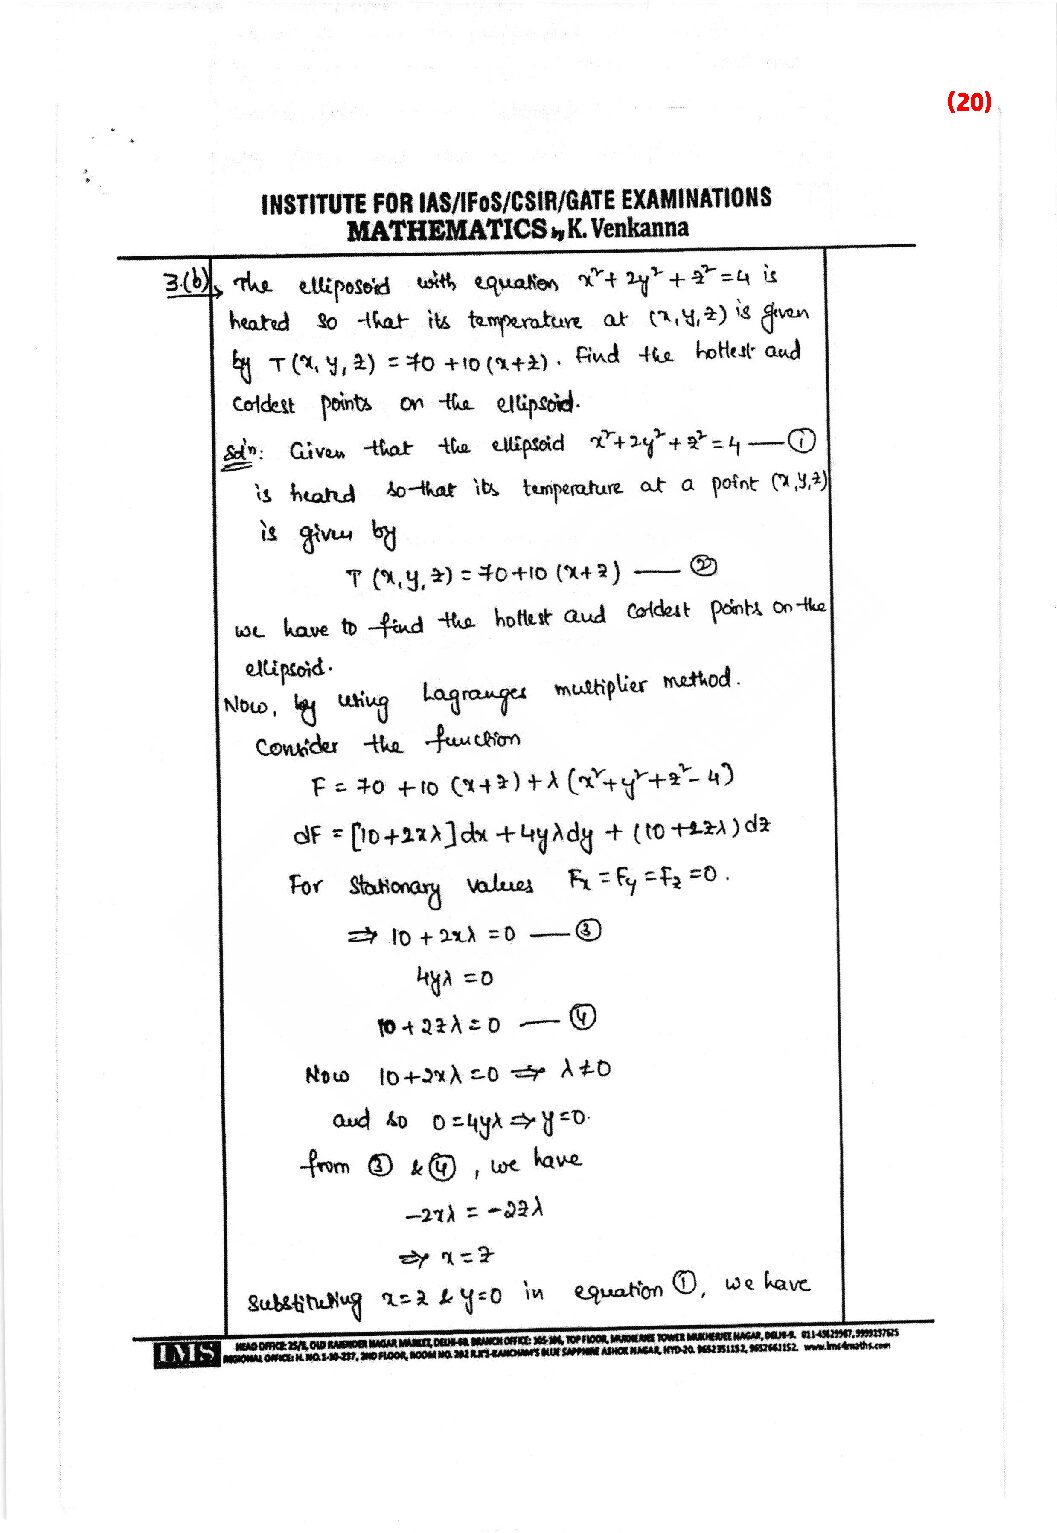 (20)
INSTITUTE FOR IAS/IFoS/CSIR/GATE EXAMINATIONS
MATHEMATICS by K. Venkanna
3.(b) The elliposoid with equation x²+2y²+z²=4 is
heated so that its temperature at (x,y,z) is given
by T(x,y,z) = 70+10(x+z). Find the hottest and
coldest points on the ellipsoid.
Sol'n: Given that the ellipsoid x²+2y²+z²=4 — ①
is heated so that its temperature at a point (x,y,z)
is given by
T(x,y,z) = 70+10(x+z) — ②
we have to find the hottest and coldest points on the
ellipsoid.
Now, by using Lagranges multiplier method.
Consider the function
F = 70+10(x+z)+λ(x²+y²+z²-4)
dF = [10+2xλ]dx+4yλdy+(10+2zλ)dz
For stationary values Fx=Fy=Fz=0.
⇒ 10+2xλ=0 — ③
4yλ=0
10+2zλ=0 — ④
Now 10+2xλ=0 ⇒ λ≠0
and so 0=4yλ ⇒ y=0.
from ③ & ④, we have
-2xλ = -2zλ
⇒ x=z
Substituting x=z & y=0 in equation ①, we have
IMS
HEAD OFFICE: 25/8, OLD RAJINDER NAGAR MARKET, DELHI-60. BRANCH OFFICE: 105-106, TOP FLOOR, MUKHERJEE TOWER MUKHERJEE NAGAR, DELHI-9. 011-45629987, 9999197625
REGIONAL OFFICE: H. NO. 1-10-237, 2ND FLOOR, ROOM NO. 202 R.K'S-KANCHAM'S BLUE SAPPHIRE ASHOK NAGAR, HYD-20. 9652351152, 9652661152. www.ims4maths.com